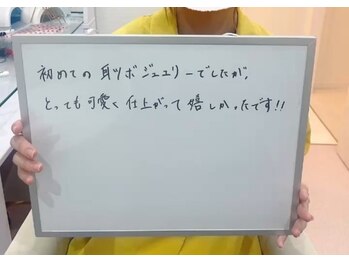 初めての耳ツボジュエリーでしたが、
とっても可愛く仕上がって嬉しかったです!!